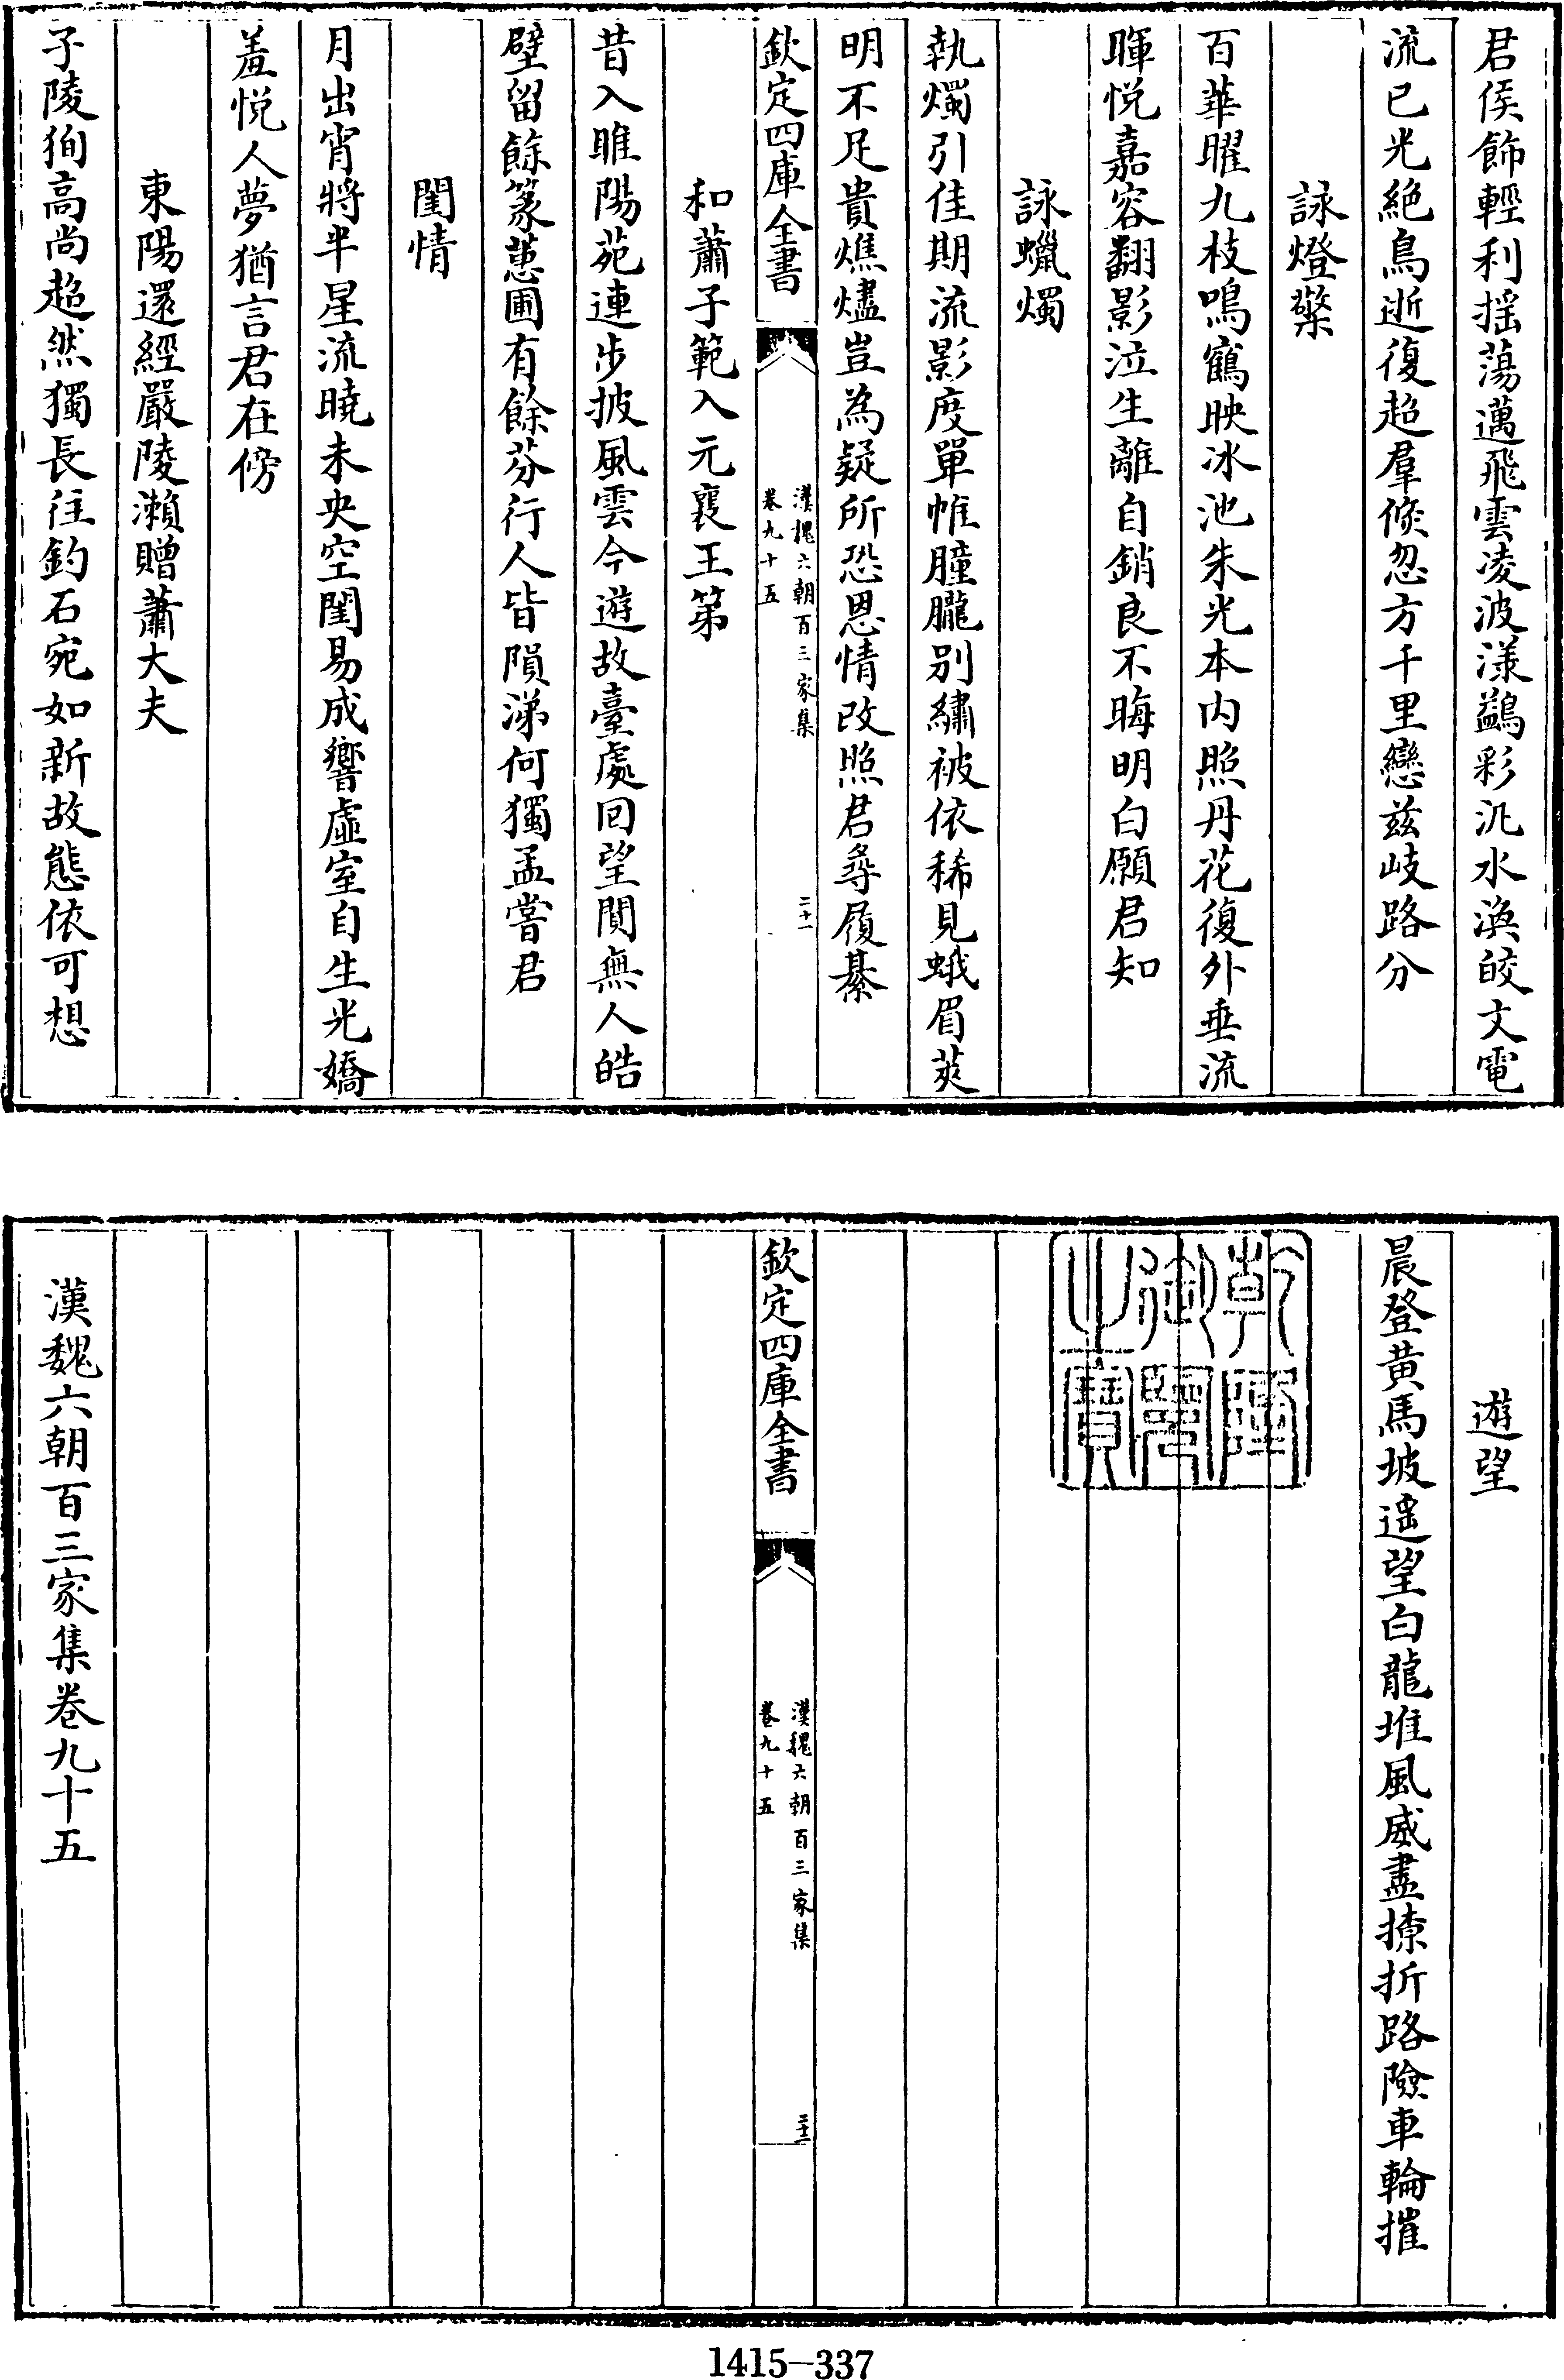 君侯飾輕利揺蕩邁飛雲凌波漾鷁彩汎水渙皎文電
流已光絶鳥逝復超羣倐忽方千里戀兹岐路分
詠燈檠
百華曜九枝鳴鶴映冰池朱光本内照丹花復外垂流
暉悦嘉容翻影泣生離自銷良不晦明白願君知
詠蠟燭
執燭引佳期流影度單帷朣朧别繡被依稀見蛾眉莢
明不足貴燋燼豈為疑所恐恩情改照君尋履綦
欽定四庫全書
漢魏六朝百三家集
卷九十五
二十一
和蕭子範入元襄王第
昔入睢陽苑連步披風雲今遊故臺處回望闃無人皓
壁留餘篆蕙圃有餘芬行人皆隕涕何獨孟嘗君
閨情
月出宵將半星流曉未央空閨易成響虛室自生光嬌
羞悦人夢猶言君在傍
東陽還經嚴陵瀬贈蕭大夫
子陵狥高尚超然獨長往釣石宛如新故態依可想
遊望
晨登黄馬坡遥望白龍堆風威盡撩折路險車輪摧
乾隆御覽之寶
欽定四庫全書
漢魏六朝百三家集
卷九十五
二十二
漢魏六朝百三家集卷九十五
1415-337